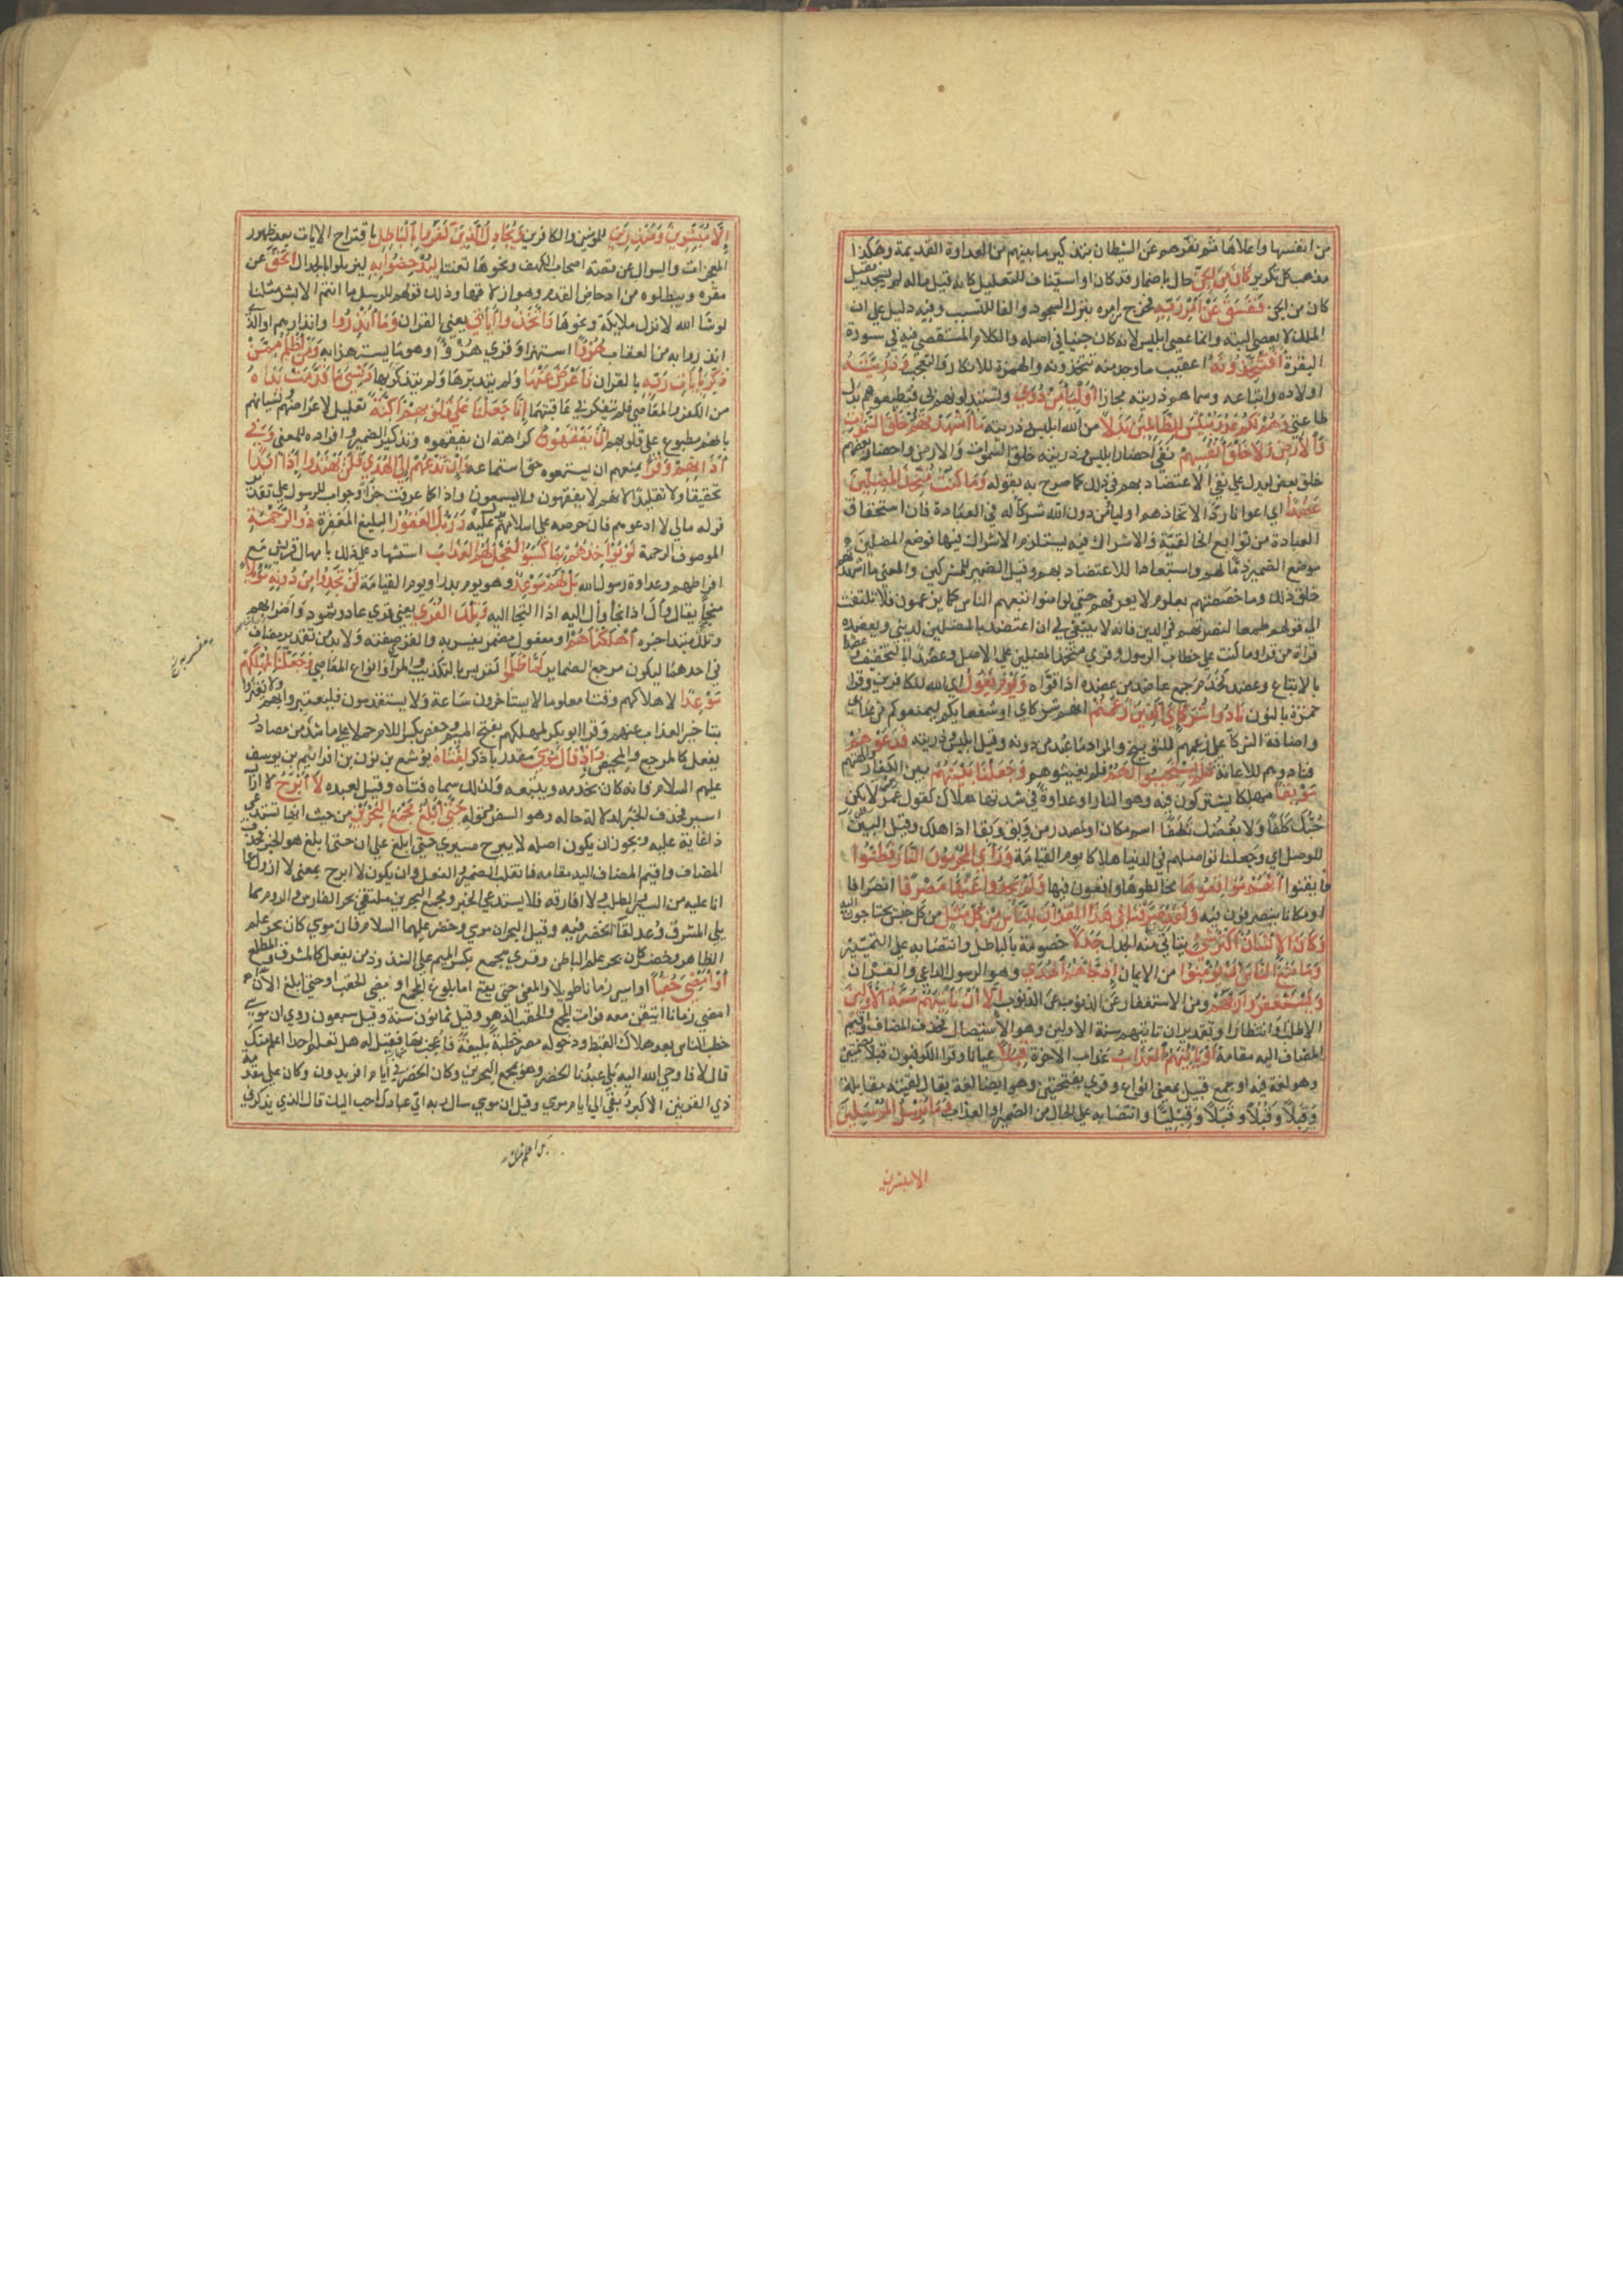 من انفسها واعلاها ثم نفرهم عن الشيطان بتذكير ما بينهم من العداوة القديمة وهكذا
مذهب كل تكرير كَانَ مِنَ الْجِنِّ حال باضمار قد كان او استيناف للتعليل كانه قيل ماله لم يسجد فقيل
كان من الجن فَفَسَقَ عَنْ أَمْرِ رَبِّهِ فخرج عن امره بترك السجود والفا للتسبب وفيه دليل على ان
الملك لا يعصي البته وانما عصى ابليس لانه كان جنيا في اصله والكلام المستقصى فيه في سورة
البقرة أَفَتَتَّخِذُونَهُ اعقيب ما وجد منه تتخذونه والهمزة للانكار والتعجب وَذُرِّيَّتَهُ
اولاده واتباعه وسماهم ذريته مجازا أَوْلِيَاءَ مِنْ دُونِي وتستبدلونهم بي فتطيعوهم بدل
طاعتي وَهُمْ لَكُمْ عَدُوٌّ بِئْسَ لِلظَّالِمِينَ بَدَلًا من الله ابليس وذريته مَا أَشْهَدْتُهُمْ خَلْقَ السَّمَوَاتِ
وَالْأَرْضِ وَلَا خَلْقَ أَنْفُسِهِمْ نفي احضار ابليس وذريته خلق السموات والارض واحضار بعضهم
خلق بعض ليدل على نفي الاعتضاد بهم في ذلك كما صرح به بقوله وَمَا كُنْتُ مُتَّخِذَ الْمُضِلِّينَ
عَضُدًا اي اعوانا ردا لاتخاذهم اوليا من دون الله شركا له في العبادة فان استحقاق
العبادة من توابع الخالقية والاشراك فيه يستلزم الاشراك فيها فوضع المضلين
موضع الضمير ذما لهم واستبعادا للاعتضاد بهم وقيل الضمير للمشركين والمعنى ما اشهدتهم
خلق ذلك وما خصصتهم بعلوم لا يعرفهم حتى لو امنوا تبعهم الناس كما يزعمون فلا تلتفت
الى قولهم طمعا لنصرتهم في الدين فانه لا ينبغي لي ان اعتضد بالمضلين لديني ويعضده
قراة من قرا وما كنت على خطاب الرسول وقري متخذا المضلين على الاصل وعضدا بالتخفيف وعضدا
بالاتباع وعضد كخدم جمع عاضد من عضده اذا قواه وَيَوْمَ يَقُولُ اي الله للكافرين وقرا
حمزة بالنون نَادُوا شُرَكَائِيَ الَّذِينَ زَعَمْتُمْ انهم شركاي او شفعايكم ليمنعوكم من عذابي
واضافة الشركا على زعمهم للتوبيخ والمراد ما عبد من دونه وقيل ابليس وذريته فَدَعَوْهُمْ
فنادوهم للاغاثة فَلَمْ يَسْتَجِيبُوا لَهُمْ فلم يغيثوهم وَجَعَلْنَا بَيْنَهُمْ بين الكفار والهتهم
مَوْبِقًا مهلكا يشتركون فيه وهو النار او عداوة في شدتها هلاك كقول عمر لا يكن
حُبُّكَ كَلَفًا وَلَا بُغْضُكَ تَلَفًا اسم مكان او مصدر من وبق وبقا اذا هلك وقيل البين
للوصل اي وجعلنا تواصلهم في الدنيا هلاكا يوم القيامة وَرَأَى الْمُجْرِمُونَ النَّارَ فَظَنُّوا
فايقنوا أَنَّهُمْ مُوَاقِعُوهَا مخالطوها واقعون فيها وَلَمْ يَجِدُوا عَنْهَا مَصْرِفًا انصرافا
او مكانا ينصرفون فيه وَلَقَدْ صَرَّفْنَا فِي هَذَا الْقُرْآنِ لِلنَّاسِ مِنْ كُلِّ مَثَلٍ من كل جنس يحتاجون اليه
وَكَانَ الْإِنْسَانُ أَكْثَرَ شَيْءٍ يتاتى منه الجدل جَدَلًا خصومة بالباطل وانتصابه على التمييز
وَمَا مَنَعَ النَّاسَ أَنْ يُؤْمِنُوا من الايمان إِذْ جَاءَهُمُ الْهُدَى وهو الرسول الداعي والقران
وَيَسْتَغْفِرُوا رَبَّهُمْ ومن الاستغفار عن الذنوب إِلَّا أَنْ تَأْتِيَهُمْ سُنَّةُ الْأَوَّلِينَ
الا طلب او انتظار او تقدير ان تاتيهم سنة الاولين وهو الاستيصال فحذف المضاف واقيم
المضاف اليه مقامه أَوْ يَأْتِيَهُمُ الْعَذَابُ عذاب الاخرة قِبَلًا عيانا وقرا الكوفيون قبلا بضمتين
وهو لغة فيه او جمع قبيل بمعنى انواع وقري بفتحتين وهو ايضا لغة يقال لقيته مقابلة
وَقِبَلًا وَقُبُلًا وَقَبَلًا وَقَبَلِيًّا وانتصابه على الحال من الضمير او العذاب وَمَا نُرْسِلُ الْمُرْسَلِينَ
الا مبشرين
إِلَّا مُبَشِّرِينَ وَمُنْذِرِينَ للمومنين والكافرين وَيُجَادِلُ الَّذِينَ كَفَرُوا بِالْبَاطِلِ باقتراح الايات بعد ظهور
المعجزات والسوال عن قصة اصحاب الكهف ونحوها تعنتا لِيُدْحِضُوا بِهِ ليزيلوا بالجدال الْحَقَّ عن
مقره ويبطلوه من ادحاض القدم وهو ازلاقها وذلك قولهم للرسل ما انتم الا بشر مثلنا
لو شا الله لانزل ملايكة ونحوها وَاتَّخَذُوا آيَاتِي يعني القران وَمَا أُنْذِرُوا وانذارهم او الذي
انذروا به من العقاب هُزُوًا استهزا وقري هُزْؤًا وهو ما يستهزا به وَمَنْ أَظْلَمُ مِمَّنْ
ذُكِّرَ بِآيَاتِ رَبِّهِ بالقران فَأَعْرَضَ عَنْهَا ولم يتدبرها ولم يتذكر بها وَنَسِيَ مَا قَدَّمَتْ يَدَاهُ
من الكفر والمعاصي فلم يتفكر في عاقبتهما إِنَّا جَعَلْنَا عَلَى قُلُوبِهِمْ أَكِنَّةً تعليل لاعراضهم ونسيانهم
بانهم مطبوع على قلوبهم أَنْ يَفْقَهُوهُ كراهة ان يفقهوه وتذكير الضمير وافراده للمعنى وَفِي
آذَانِهِمْ وَقْرًا يمنعهم ان يستمعوه حق استماعه وَإِنْ تَدْعُهُمْ إِلَى الْهُدَى فَلَنْ يَهْتَدُوا إِذًا أَبَدًا
تحقيقا ولا تقليدا لانهم لا يفقهون ولا يسمعون واذا كما عرفت جزا وجواب للرسول على تقدير
قوله مالي لا ادعوهم فان حرصه على اسلامهم يدل عليه وَرَبُّكَ الْغَفُورُ البليغ المغفرة ذُو الرَّحْمَةِ
الموصوف بالرحمة لَوْ يُؤَاخِذُهُمْ بِمَا كَسَبُوا لَعَجَّلَ لَهُمُ الْعَذَابَ استشهاد على ذلك بامهال قريش مع
افراطهم وعداوة رسول الله بَلْ لَهُمْ مَوْعِدٌ وهو يوم بدر او يوم القيامة لَنْ يَجِدُوا مِنْ دُونِهِ مَوْئِلًا
منجأ يقال وأل اذا نجا وأل اليه اذا التجا اليه وَتِلْكَ الْقُرَى يعني قري عاد وثمود واضرابهم
وتلك مبتدا خبره أَهْلَكْنَاهُمْ او مفعول مضمر يفسر به والقرى صفته ولا بد من تقدير مضاف
في احدهما ليكون مرجع الضماير لَمَّا ظَلَمُوا كقريش بالتكذيب والمرا وانواع المعاصي وَجَعَلْنَا لِمَهْلِكِهِمْ
مَوْعِدًا لاهلاكهم وقتا معلوما لا يستاخرون ساعة ولا يستقدمون فليعتبروا بهم ولا يغتروا
بتاخير العذاب عنهم وقرا ابو بكر لمهلكهم بفتح الميم وحفص بكسر اللام حملا على ما شذ من مصادر
يفعل كالمرجع والمحيض وَإِذْ قَالَ مُوسَى مقدر باذكر لِفَتَاهُ يوشع بن نون بن افراثيم بن يوسف
عليهم السلام فانه كان يخدمه ويتبعه ولذلك سماه فتاه وقيل لعبده لَا أَبْرَحُ لا ازال
اسير فحذف الخبر لدلالة حاله وهو السفر وقوله حَتَّى أَبْلُغَ مَجْمَعَ الْبَحْرَيْنِ من حيث انها تستدعي
ذا غاية عليه ويجوز ان يكون اصله لا يبرح مسيري حتى ابلغ على ان حتى ابلغ هو الخبر فحذف
المضاف واقيم المضاف اليه مقامه فانقلب الضمير والفعل وان يكون لا ابرح بمعنى لا ازول عما
انا عليه من السير والطلب ولا افارقه فلا يستدعي الخبر ومجمع البحرين ملتقى بحر الفارس والروم مما
يلي المشرق وعد لقا الخضر فيه وقيل البحران موسي وخضر عليهما السلام فان موسي كان بحر علم
الظاهر وخضر كان بحر علم الباطن وقري مجمع بكسر الميم على الشذوذ من يفعل كالمشرق والمطلع
أَوْ أَمْضِيَ حُقُبًا او اسير زمانا طويلا والمعنى حتى يقع اما بلوغ المجمع او مضي الحقب او حتى ابلغ الا ان
امضي زمانا اتيقن معه فوات المجمع والحقب الدهر وقيل ثمانون سنة وقيل سبعون روي ان موسي
خطب الناس بعد هلاك القبط ودخوله مصر خطبة بليغة فاعجب بها فقيل له هل تعلم احدا اعلم منك
قال لا فاوحى الله اليه بلي عبدنا الخضر وهو بمجمع البحرين وكان الخضر في ايام افريدون وكان على مقدمة
ذي القرنين الاكبر وبقي الى ايام موسي وقيل ان موسي سال ربه اي عبادك احب اليك قال الذي يذكرني